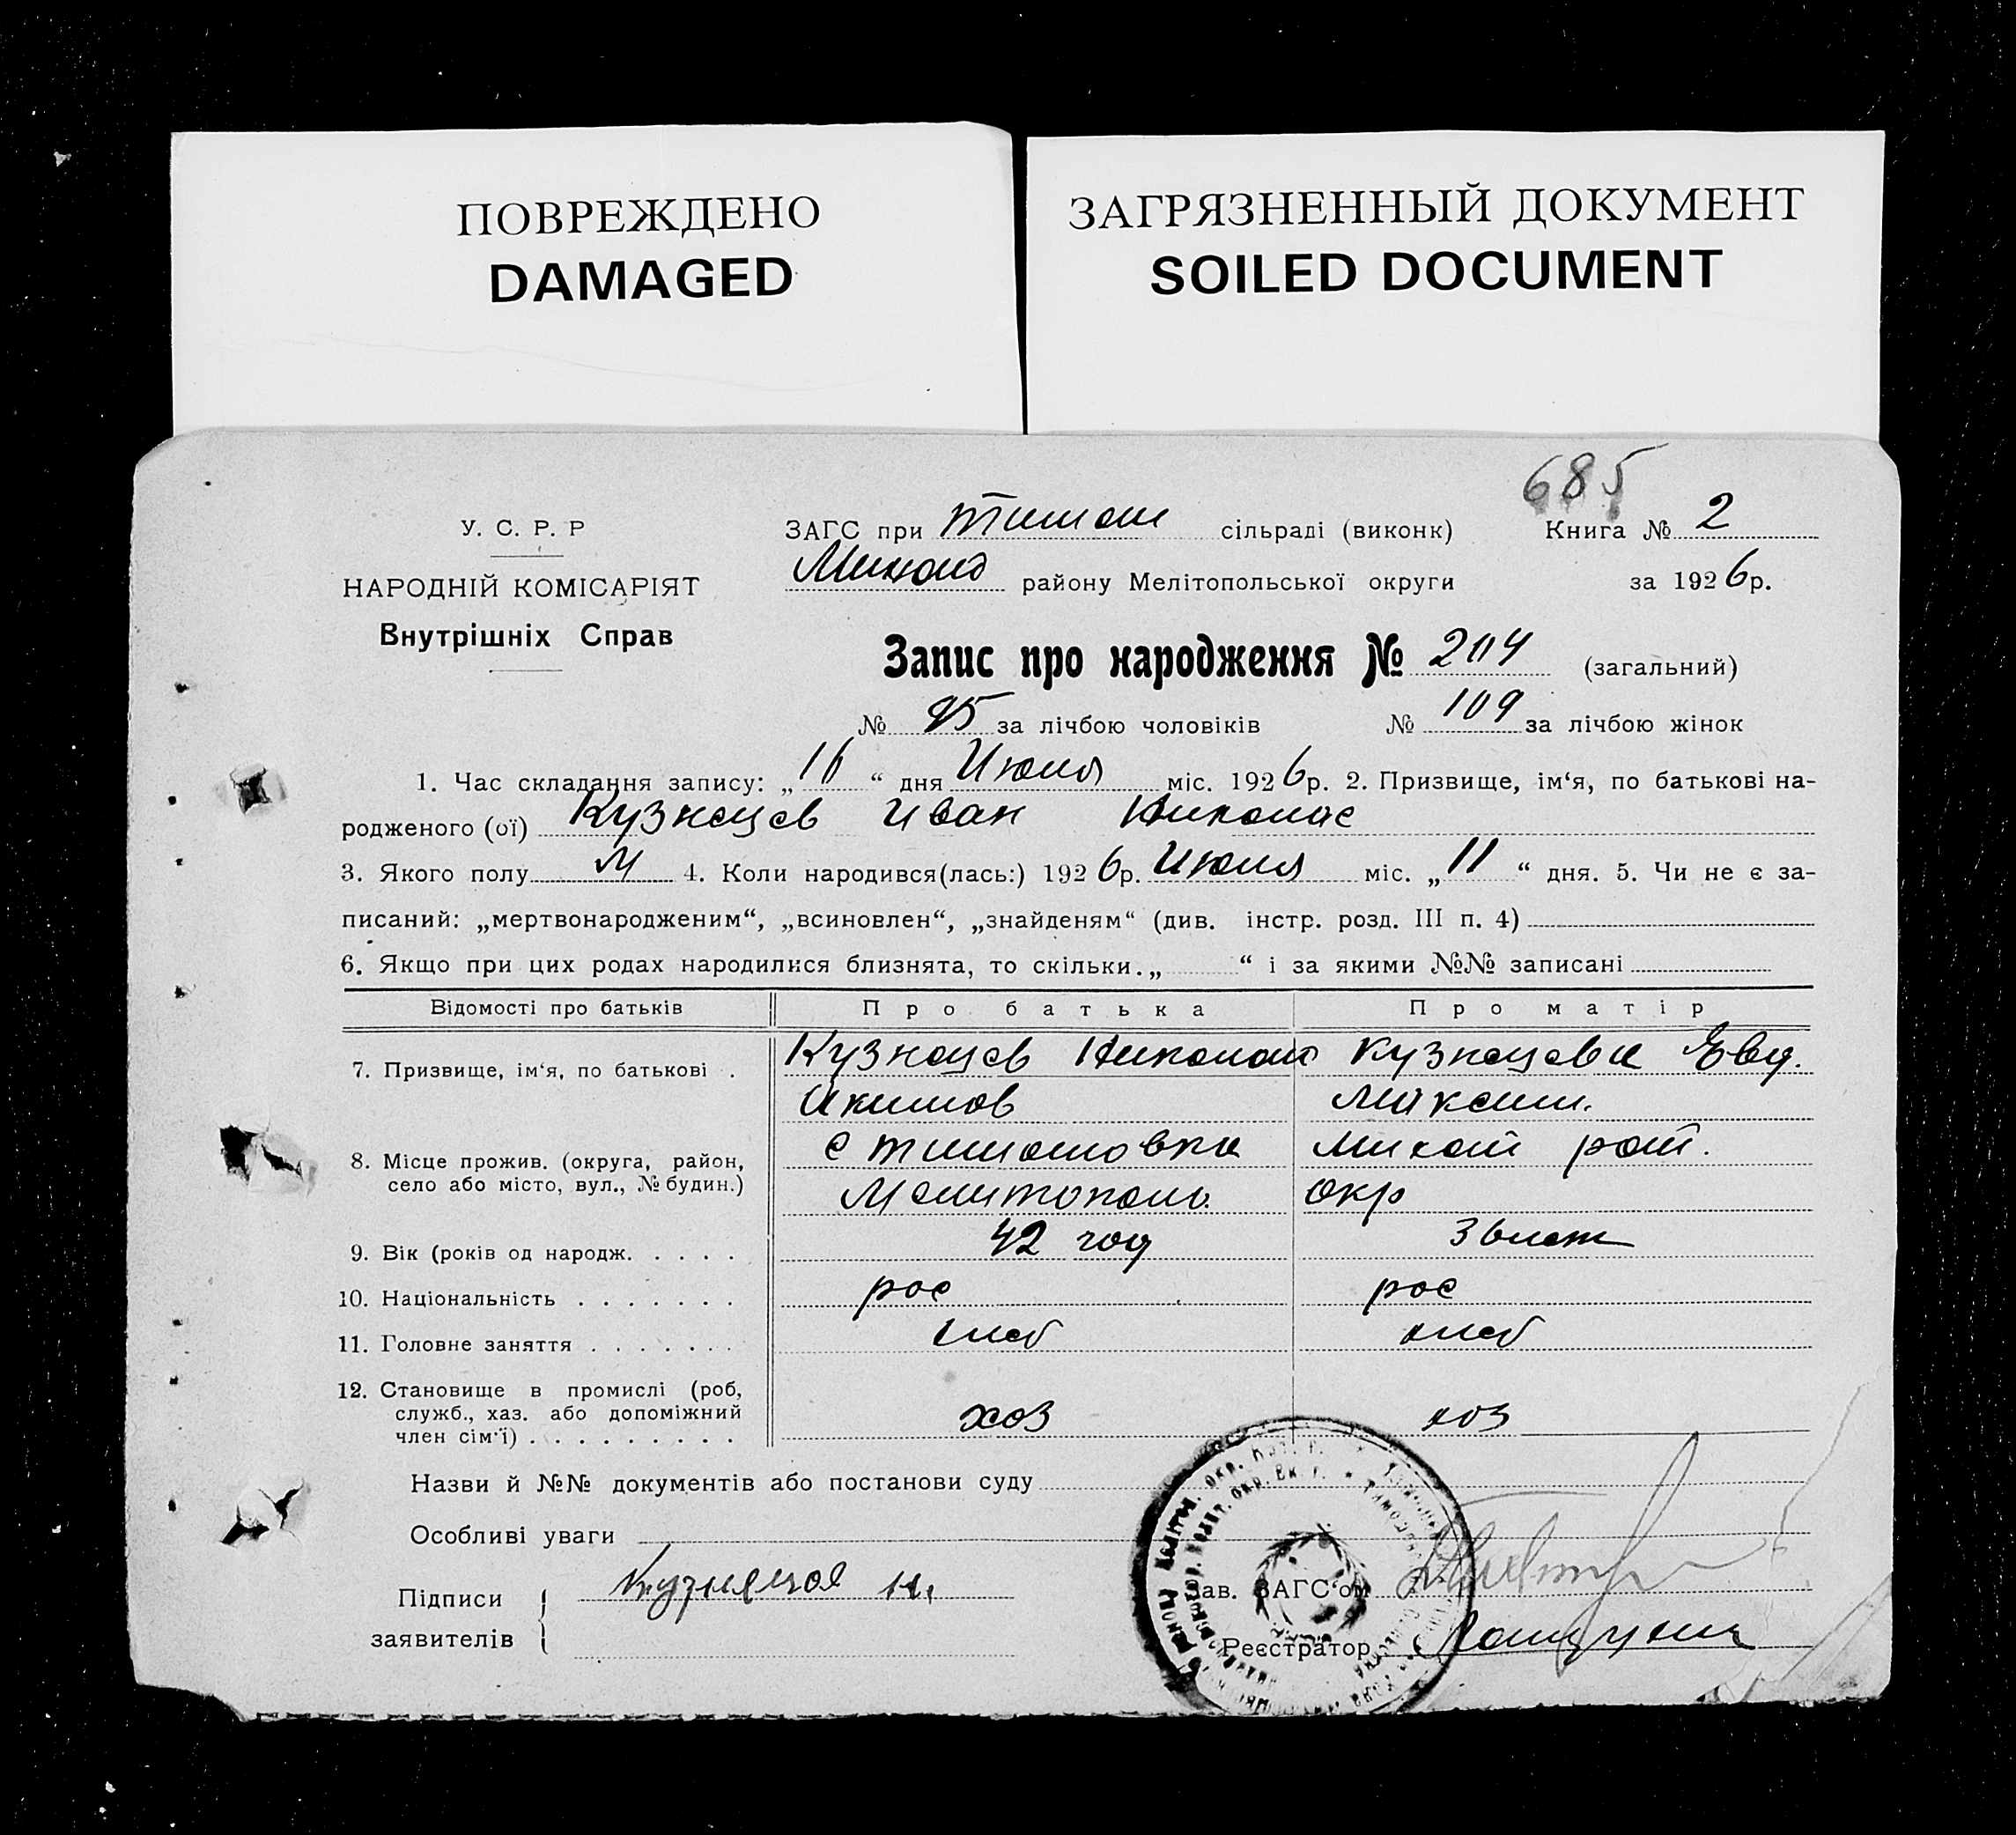 ПОВРЕЖДЕНО
DAMAGED
ЗАГРЯЗНЕННЫЙ ДОКУМЕНТ
SOILED DOCUMENT
685
У. С. Р. Р
НАРОДНІЙ КОМІСАРІЯТ
Внутрішніх Справ
ЗАГС при Тимош сільраді (виконк) Книга № 2
району Мелітопольської округи за 1926р.
Запис про народження № 204 (загальний)
№ 95 за лічбою чоловіків № 109 за лічбою жінок
1. Час складання запису: „16“ дня Июля міс. 1926р. 2. Призвище, ім‘я, по батькові на-
родженого (ої) Кузнецов Иван Николае
3. Якого полу М 4. Коли народився(лась:) 1926р. Июля міс. „11“ дня. 5. Чи не є за-
писаний: „мертвонародженим“, „всиновлен“, „знайденям“ (див. інстр. розд. III п. 4)
6. Якщо при цих родах народилися близнята, то скільки.„ “ і за якими №№ записані
Відомості про батьків Про батька Про матір
7. Призвище, ім‘я, по батькові . Кузнецов Николай Кузнецова Евд.
Акимов Максим.
8. Місце прожив. (округа, район, с Тимошовка рай.
село або місто, вул., № будин.) Мелитополь. окр
9. Вік (років од народж. . . . . 42 год 36 лет
10. Національність . . . . . . . рос рос
11. Головне заняття . . . . . . . хлеб хлеб
12. Становище в промислі (роб,
служб., хаз. або допоміжний
член сім‘ї) . . . . . . . . . хоз хоз
Назви й №№ документів або постанови суду
Особливі уваги
Підписи
заявителів
Зав. ЗАГС‘ом
Реєстратор